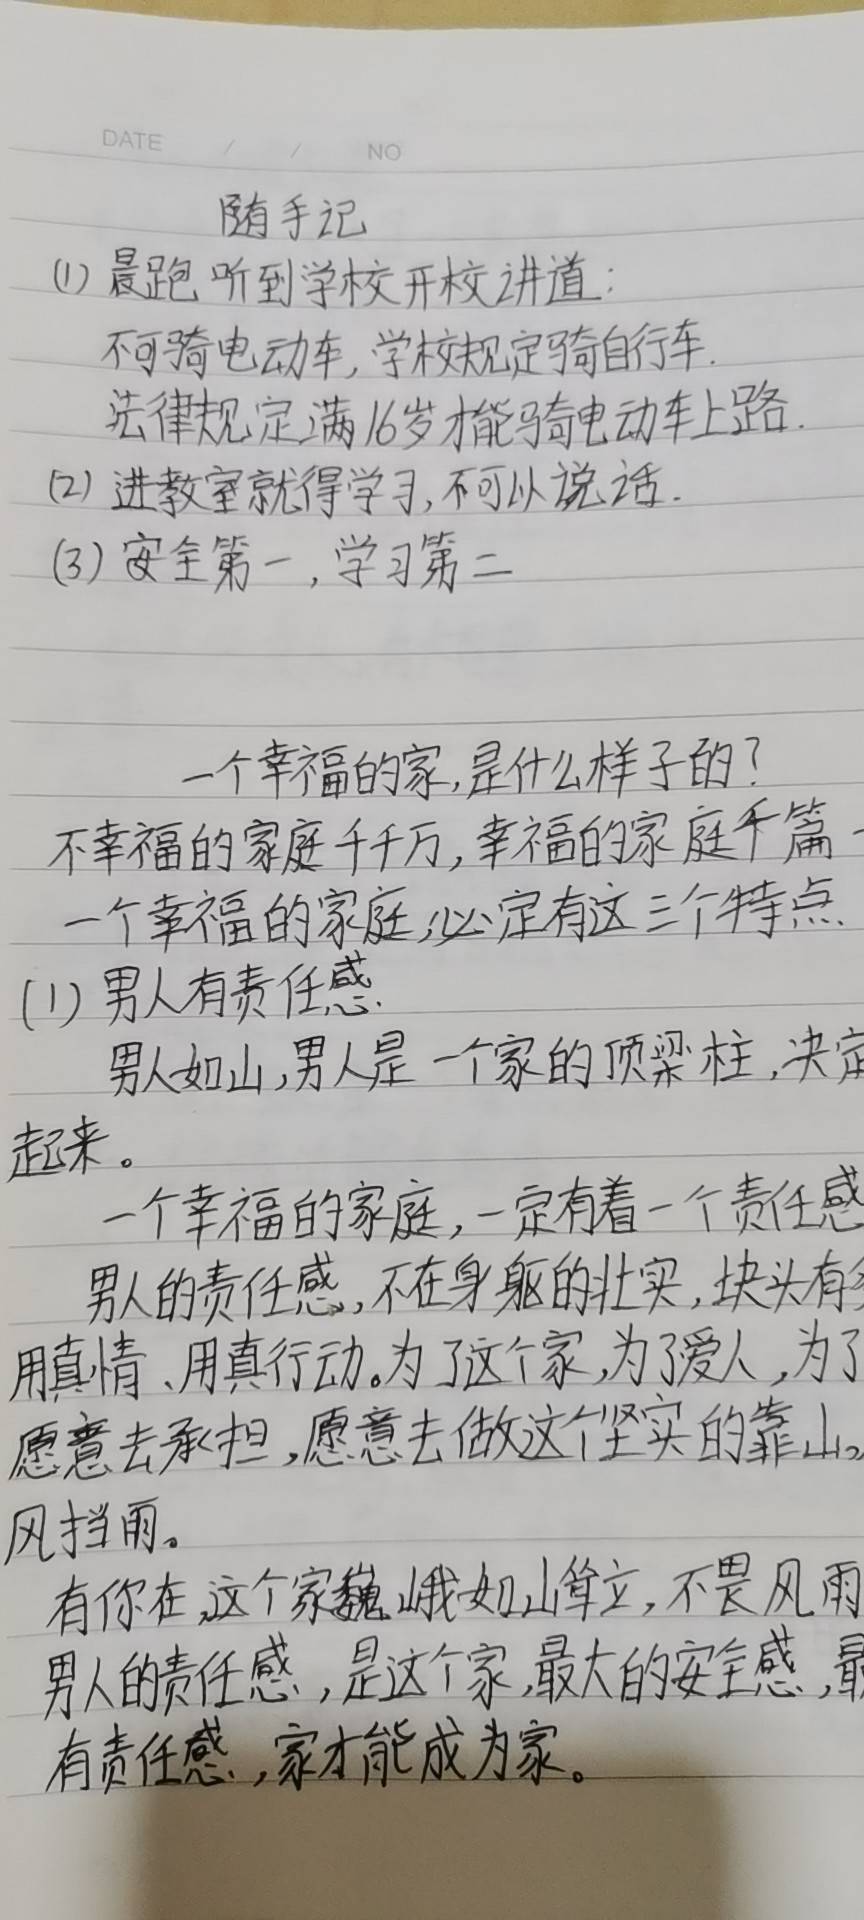 DATE / / NO
随手记
(1) 晨跑 听到学校开校讲道:
不可骑电动车,学校规定骑自行车.
法律规定满16岁才能骑电动车上路.
(2) 进教室就得学习,不可以说话.
(3) 安全第一,学习第二
一个幸福的家,是什么样子的?
不幸福的家庭千千万,幸福的家庭千篇一
一个幸福的家庭,必定有这三个特点.
(1) 男人有责任感.
男人如山,男人是一个家的顶梁柱,决定
起来。
一个幸福的家庭,一定有着一个责任感
男人的责任感,不在身躯的壮实,块头有
用真情、用真行动。为了这个家,为了爱人,为了
愿意去承担,愿意去做这个坚实的靠山。
风挡雨。
有你在,这个家巍峨如山耸立,不畏风雨
男人的责任感,是这个家,最大的安全感,最
有责任感,家才能成为家。